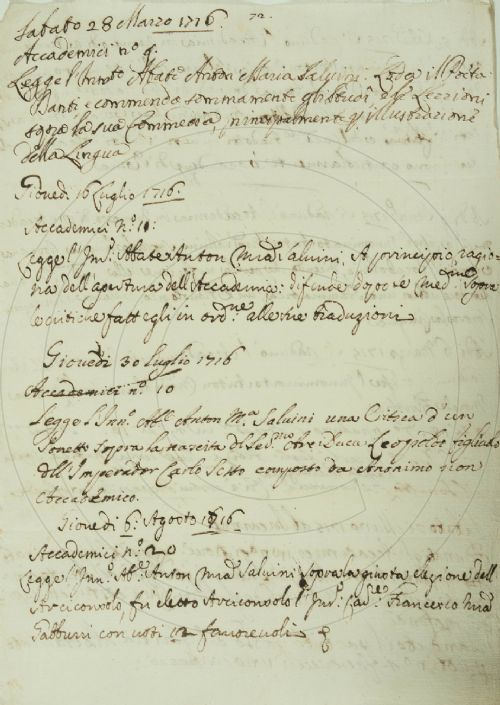 Sabato 28 Marzo 1716. 72.
Accademici n.º 9.
Legge l'Innto. Abate Anton Maria Salvini. Loda il Poeta
Dante e commenda sommamente gli Studi e le Lezioni
sopra la sua Commedia, principalmente p illustrazione
della Lingua
Giovedì 16 Luglio 1716.
Accademici N.º 11:
Legge l'Inn.º Abate Anton Mia Salvini. A principio, ragio-
na dell'apertura dell'Accademia: difende dopo le med.me sopra
le critiche fattegli in ord.ne alle sue traduzioni
Giovedì 30 luglio 1716
Accademici n.º 10
Legge l'Inn.º Abe Anton M.a Salvini una Critica d'un
Sonetto sopra la nascita del Arciduca Leopoldo figliuolo
dell'Imperador Carlo Sesto composto da Anonimo non
Accademico.
Giovedì 6: Agosto 1616
Accademici n.º 20
Legge l'Inn.º Ab.e Anton Mia Salvini sopra la nuova elezione dell
Arciconsolo, fu eletto Arciconsolo l'Inn.º Cav.re Francesco Mia
Gabburri con voti 12 favorevoli